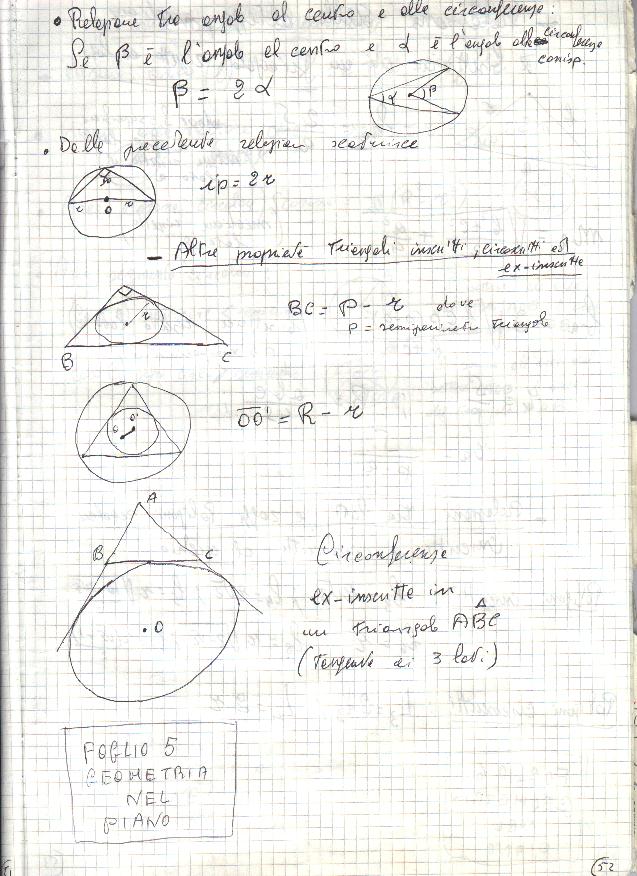 • Relazione tra angolo al centro e alla circonferenza:
Se β è l'angolo al centro e α è l'angolo alla circonferenza
corrisp.
β = 2α
α β
• Dalla precedente relazion scaturisce
ip = 2r
r O r
– Altre proprietà Triangoli inscritti, circoscritti ed
ex-inscritte
r
B C
BC = P – r dove
P = semiperimetro triangolo
O O'
OO' = R – r
A
B C
O
Circonferenze
ex-inscritte in
un triangolo ABC
(Tangente ai 3 lati)
FOGLIO 5
GEOMETRIA
NEL
PIANO
52